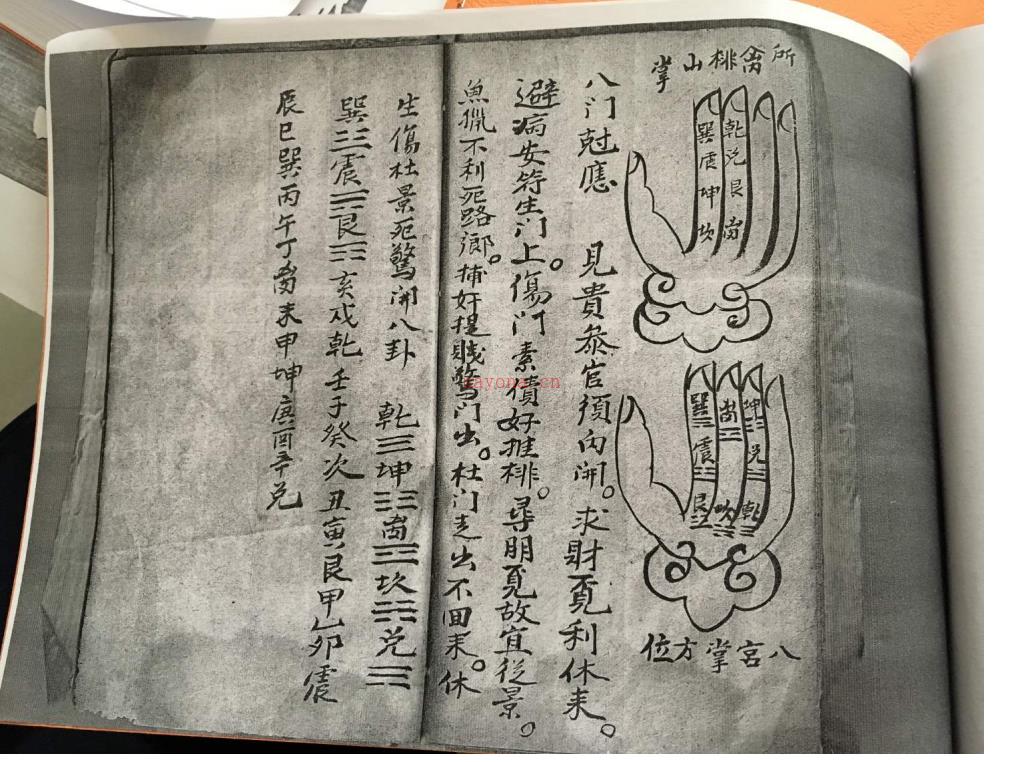 所禽桃山掌
乾兌艮离
巽震坤坎
坤☷兌☱乾☰
离☲坎☵
巽☴震☳艮☶
八宮掌方位
八门尅應 見貴叅官須向開。求財覔利休来。
避病安符生门上。傷门索債好推桃。尋朋覔故宜從景。
魚獵不利死路鄉。捕奸捉賊驚门出。杜门走出不回来。休
生傷杜景死驚開八卦 乾☰坤☷离☲坎☵兌☱
巽☴震☳艮☶亥戌乾壬子癸次丑寅艮甲乙卯震
辰巳巽丙午丁离未申坤庚酉辛兌
nayona.cn